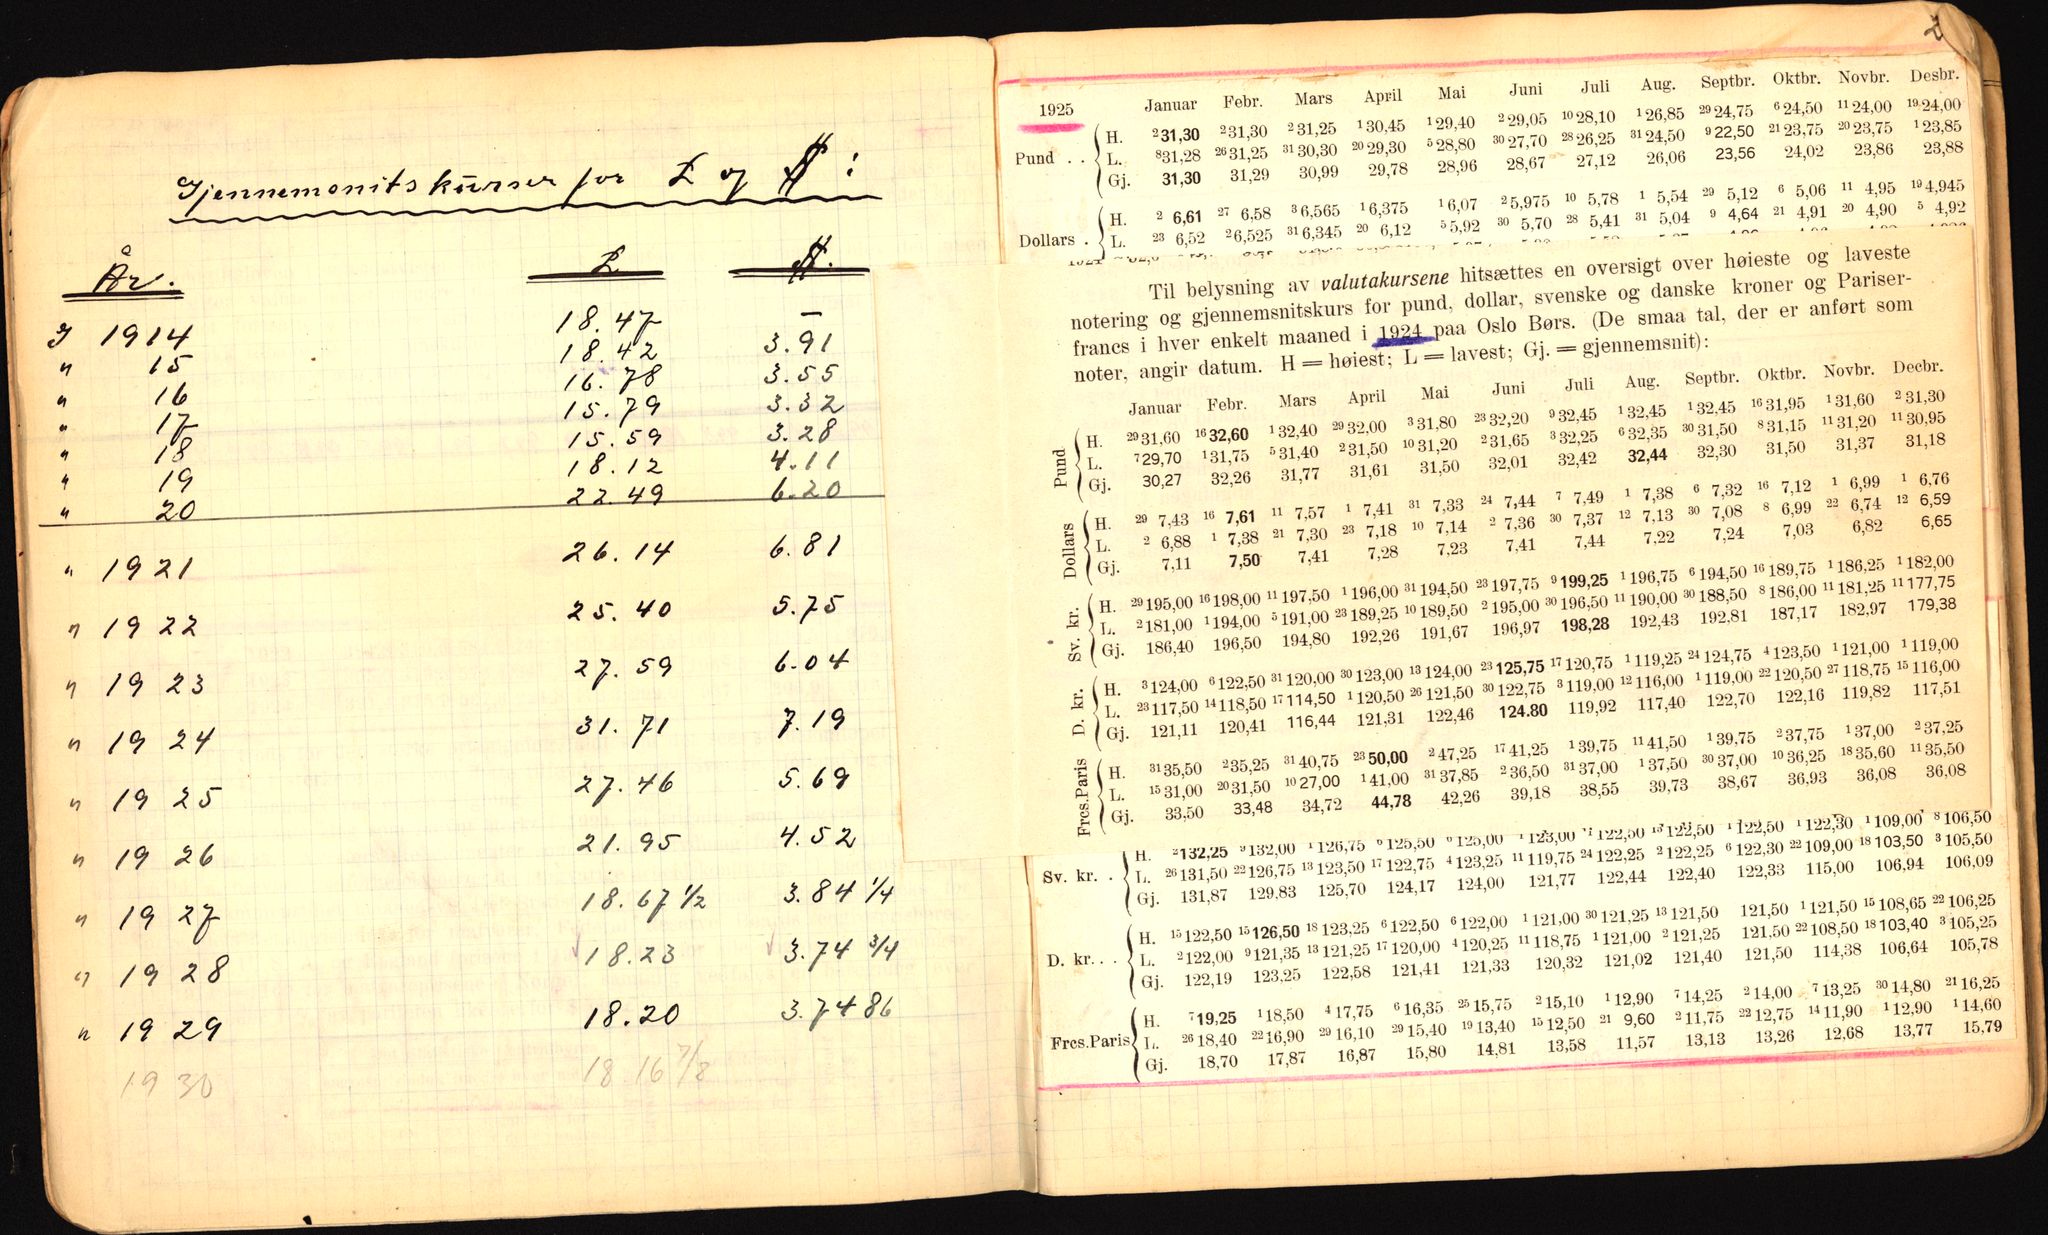 Gjennemsnitskurser for £ og $ :
År. £ $.
I 1914 18.47 –
" 15 18.42 3.91
" 16 16.78 3.55
" 17 15.79 3.32
" 18 15.59 3.28
" 19 18.12 4.11
" 20 22.49 6.20
" 1921 26.14 6.81
" 1922 25.40 5.75
" 1923 27.59 6.04
" 1924 31.71 7.19
" 1925 27.46 5.69
" 1926 21.95 4.52
" 1927 18.67 1/2 3.84 1/4
" 1928 18.23 3.74 3/4
" 1929 18.20 3.7486
1930 18 16 7/8
2
1925 Januar Febr. Mars April Mai Juni Juli Aug. Septbr. Oktbr. Novbr. Desbr.
Pund . . H. ²31,30 ²31,30 ²31,25 ¹30,45 ¹29,40 ²29,05 ¹⁰28,10 ¹26,85 ²⁹24,75 ⁶24,50 ¹¹24,00 ¹⁹24,00
L. ⁸31,28 ²⁶31,25 ³¹30,30 ²⁰29,30 ⁵28,80 ³⁰27,70 ²⁸26,25 ³¹24,50 ⁹22,50 ²¹23,75 ²⁰23,75 ¹23,85
Gj. 31,30 31,29 30,99 29,78 28,96 28,67 27,12 26,06 23,56 24,02 23,86 23,88
Dollars . H. ²6,61 ²⁷6,58 ³6,565 ¹6,375 ¹6,07 ²5,975 ¹⁰5,78 ¹5,54 ²⁹5,12 ⁶5,06 ¹¹4,95 ¹⁹4,945
L. ²³6,52 ²6,525 ³¹6,345 ²⁰6,12 ⁵5,92 ³⁰5,70 ²⁸5,41 ³¹5,04 ⁹4,64 ²¹4,91 ²⁰4,90 ⁵4,92
Til belysning av valutakursene hitsættes en oversigt over høieste og laveste
notering og gjennemsnitskurs for pund, dollar, svenske og danske kroner og Pariser-
francs i hver enkelt maaned i 1924 paa Oslo Børs. (De smaa tal, der er anført som
noter, angir datum. H = høiest; L = lavest; Gj. = gjennemsnit):
Januar Febr. Mars April Mai Juni Juli Aug. Septbr. Oktbr. Novbr. Decbr.
Pund H. ²⁹31,60 ¹⁶32,60 ¹32,40 ²⁹32,00 ³31,80 ²³32,20 ⁹32,45 ¹32,45 ¹32,45 ¹⁶31,95 ¹31,60 ²31,30
L. ⁷29,70 ¹31,75 ⁵31,40 ²31,50 ¹⁰31,20 ²31,65 ³32,25 ⁶32,35 ³⁰31,50 ⁸31,15 ¹¹31,20 ¹¹30,95
Gj. 30,27 32,26 31,77 31,61 31,50 32,01 32,42 32,44 32,30 31,50 31,37 31,18
Dollars H. ²⁹7,43 ¹⁶7,61 ¹¹7,57 ¹7,41 ³¹7,33 ²⁴7,44 ⁷7,49 ¹7,38 ⁶7,32 ¹⁶7,12 ¹6,99 ¹6,76
L. ²6,88 ¹7,38 ²¹7,30 ²³7,18 ¹⁰7,14 ²7,36 ³⁰7,37 ¹²7,13 ³⁰7,08 ⁸6,99 ²²6,74 ¹²6,59
Gj. 7,11 7,50 7,41 7,28 7,23 7,41 7,44 7,22 7,24 7,03 6,82 6,65
Sv. kr. H. ²⁹195,00 ¹⁶198,00 ¹¹197,50 ¹196,00 ³¹194,50 ²³197,75 ⁹199,25 ¹196,75 ⁶194,50 ¹⁶189,75 ¹186,25 ¹182,00
L. ²181,00 ¹194,00 ⁵191,00 ²³189,25 ¹⁰189,50 ²195,00 ³⁰196,50 ¹¹190,00 ³⁰188,50 ⁸186,00 ¹¹181,25 ¹¹177,75
Gj. 186,40 196,50 194,80 192,26 191,67 196,97 198,28 192,43 192,81 187,17 182,97 179,38
D. kr. H. ³124,00 ⁶122,50 ³¹120,00 ³⁰123,00 ¹³124,00 ²³125,75 ¹⁷120,75 ¹119,25 ²⁴124,75 ⁴123,50 ¹121,00 ¹119,00
L. ²³117,50 ¹⁴118,50 ¹⁷114,50 ¹120,50 ²⁶121,50 ³⁰122,75 ³119,00 ¹²116,00 ¹119,00 ²²120,50 ²⁷118,75 ¹⁵116,00
Gj. 121,11 120,41 116,44 121,31 122,46 124.80 119,92 117,40 122,70 122,16 119,82 117,51
Frcs.Paris H. ³¹35,50 ²35,25 ³¹40,75 ²³50,00 ²47,25 ¹⁷41,25 ¹39,75 ¹¹41,50 ¹39,75 ²37,75 ¹37,00 ²37,25
L. ¹⁵31,00 ²⁰31,50 ¹⁰27,00 ¹41,00 ³¹37,85 ²36,50 ³¹37,00 ¹37,50 ³⁰37,00 ¹⁰36,25 ¹⁸35,60 ¹¹35,50
Gj. 33,50 33,48 34,72 44,78 42,26 39,18 38,55 39,73 38,67 36,93 36,08 36,08
Sv. kr. . H. ²132,25 ³132,00 ¹126,75 ⁶125,50 ⁶125,00 ¹123,00 122,50 ¹³122,50 ¹122,50 ¹122,30 ¹109,00 ⁸106,50
L. ²⁶131,50 ²²126,75 ¹³123,50 ¹⁷122,75 ⁴123,25 ¹¹119,75 ²⁴122,25 ²122,25 ⁶122,30 ²²109,00 ¹⁸103,50 ³105,50
Gj. 131,87 129,83 125,70 124,17 124,00 121,77 122,44 122,40 122,33 115,00 106,94 106,09
D. kr. . . H. ¹⁵122,50 ¹⁵126,50 ¹⁸123,25 ⁶122,50 ⁶122,00 ¹121,00 ³⁰121,25 ¹³121,50 121,50 ¹121,50 ¹⁵108,65 ²²106,25
L. ²122,00 ⁹121,35 ¹³121,25 ¹⁷120,00 ⁴120,25 ¹¹118,75 ¹121,00 ²121,25 121,50 ²²108,50 ¹⁸103,40 ³105,25
Gj. 122,19 123,25 122,58 121,41 121,33 120,32 121,02 121,40 121,50 114,38 106,64 105,78
Frcs.Paris H. ⁷19,25 ¹18,50 ⁴17,75 ⁶16,35 ²⁵15,75 ²15,10 ¹12,90 ⁷14,25 ²14,00 ⁷13,25 ³⁰14,80 ²¹16,25
L. ²⁶18,40 ²²16,90 ²⁹16,10 ²⁹15,40 ¹⁹13,40 ¹⁵12,50 ²¹9,60 ²11,75 ²²12,75 ¹⁴11,90 ¹12,90 ¹14,60
Gj. 18,70 17,87 16,87 15,80 14,81 13,58 11,57 13,13 13,26 12,68 13,77 15,79